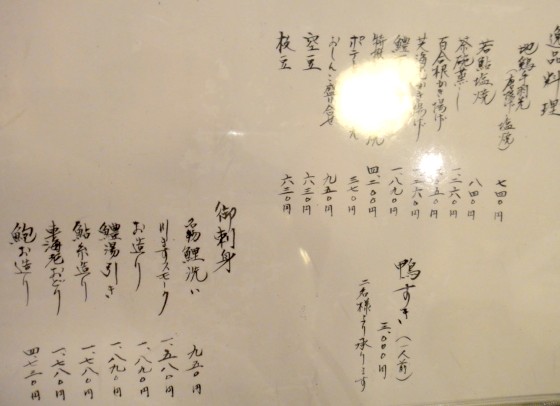 逸品料理
地鶏
塩焼 七四〇円
若鮎塩焼 八四〇円
茶碗蒸し 一、二六〇円
百合根かき揚げ
芝海老かき揚げ
鯉 一、八九〇円
四、二〇〇円
ポテト 三七〇円
おしんこ盛り合せ 九五〇円
空豆 六三〇円
枝豆 六三〇円
鴨すき(一人前)
三、〇〇〇円
二名様より承ります
御刺身
名物鯉洗い 九五〇円
川ますスモーク 一、五八〇円
お造り 一、八九〇円
鯉湯引き 一、八九〇円
鮎糸造り 一、七八〇円
車海老おどり 一、七八〇円
鮑お造り 四、七三〇円